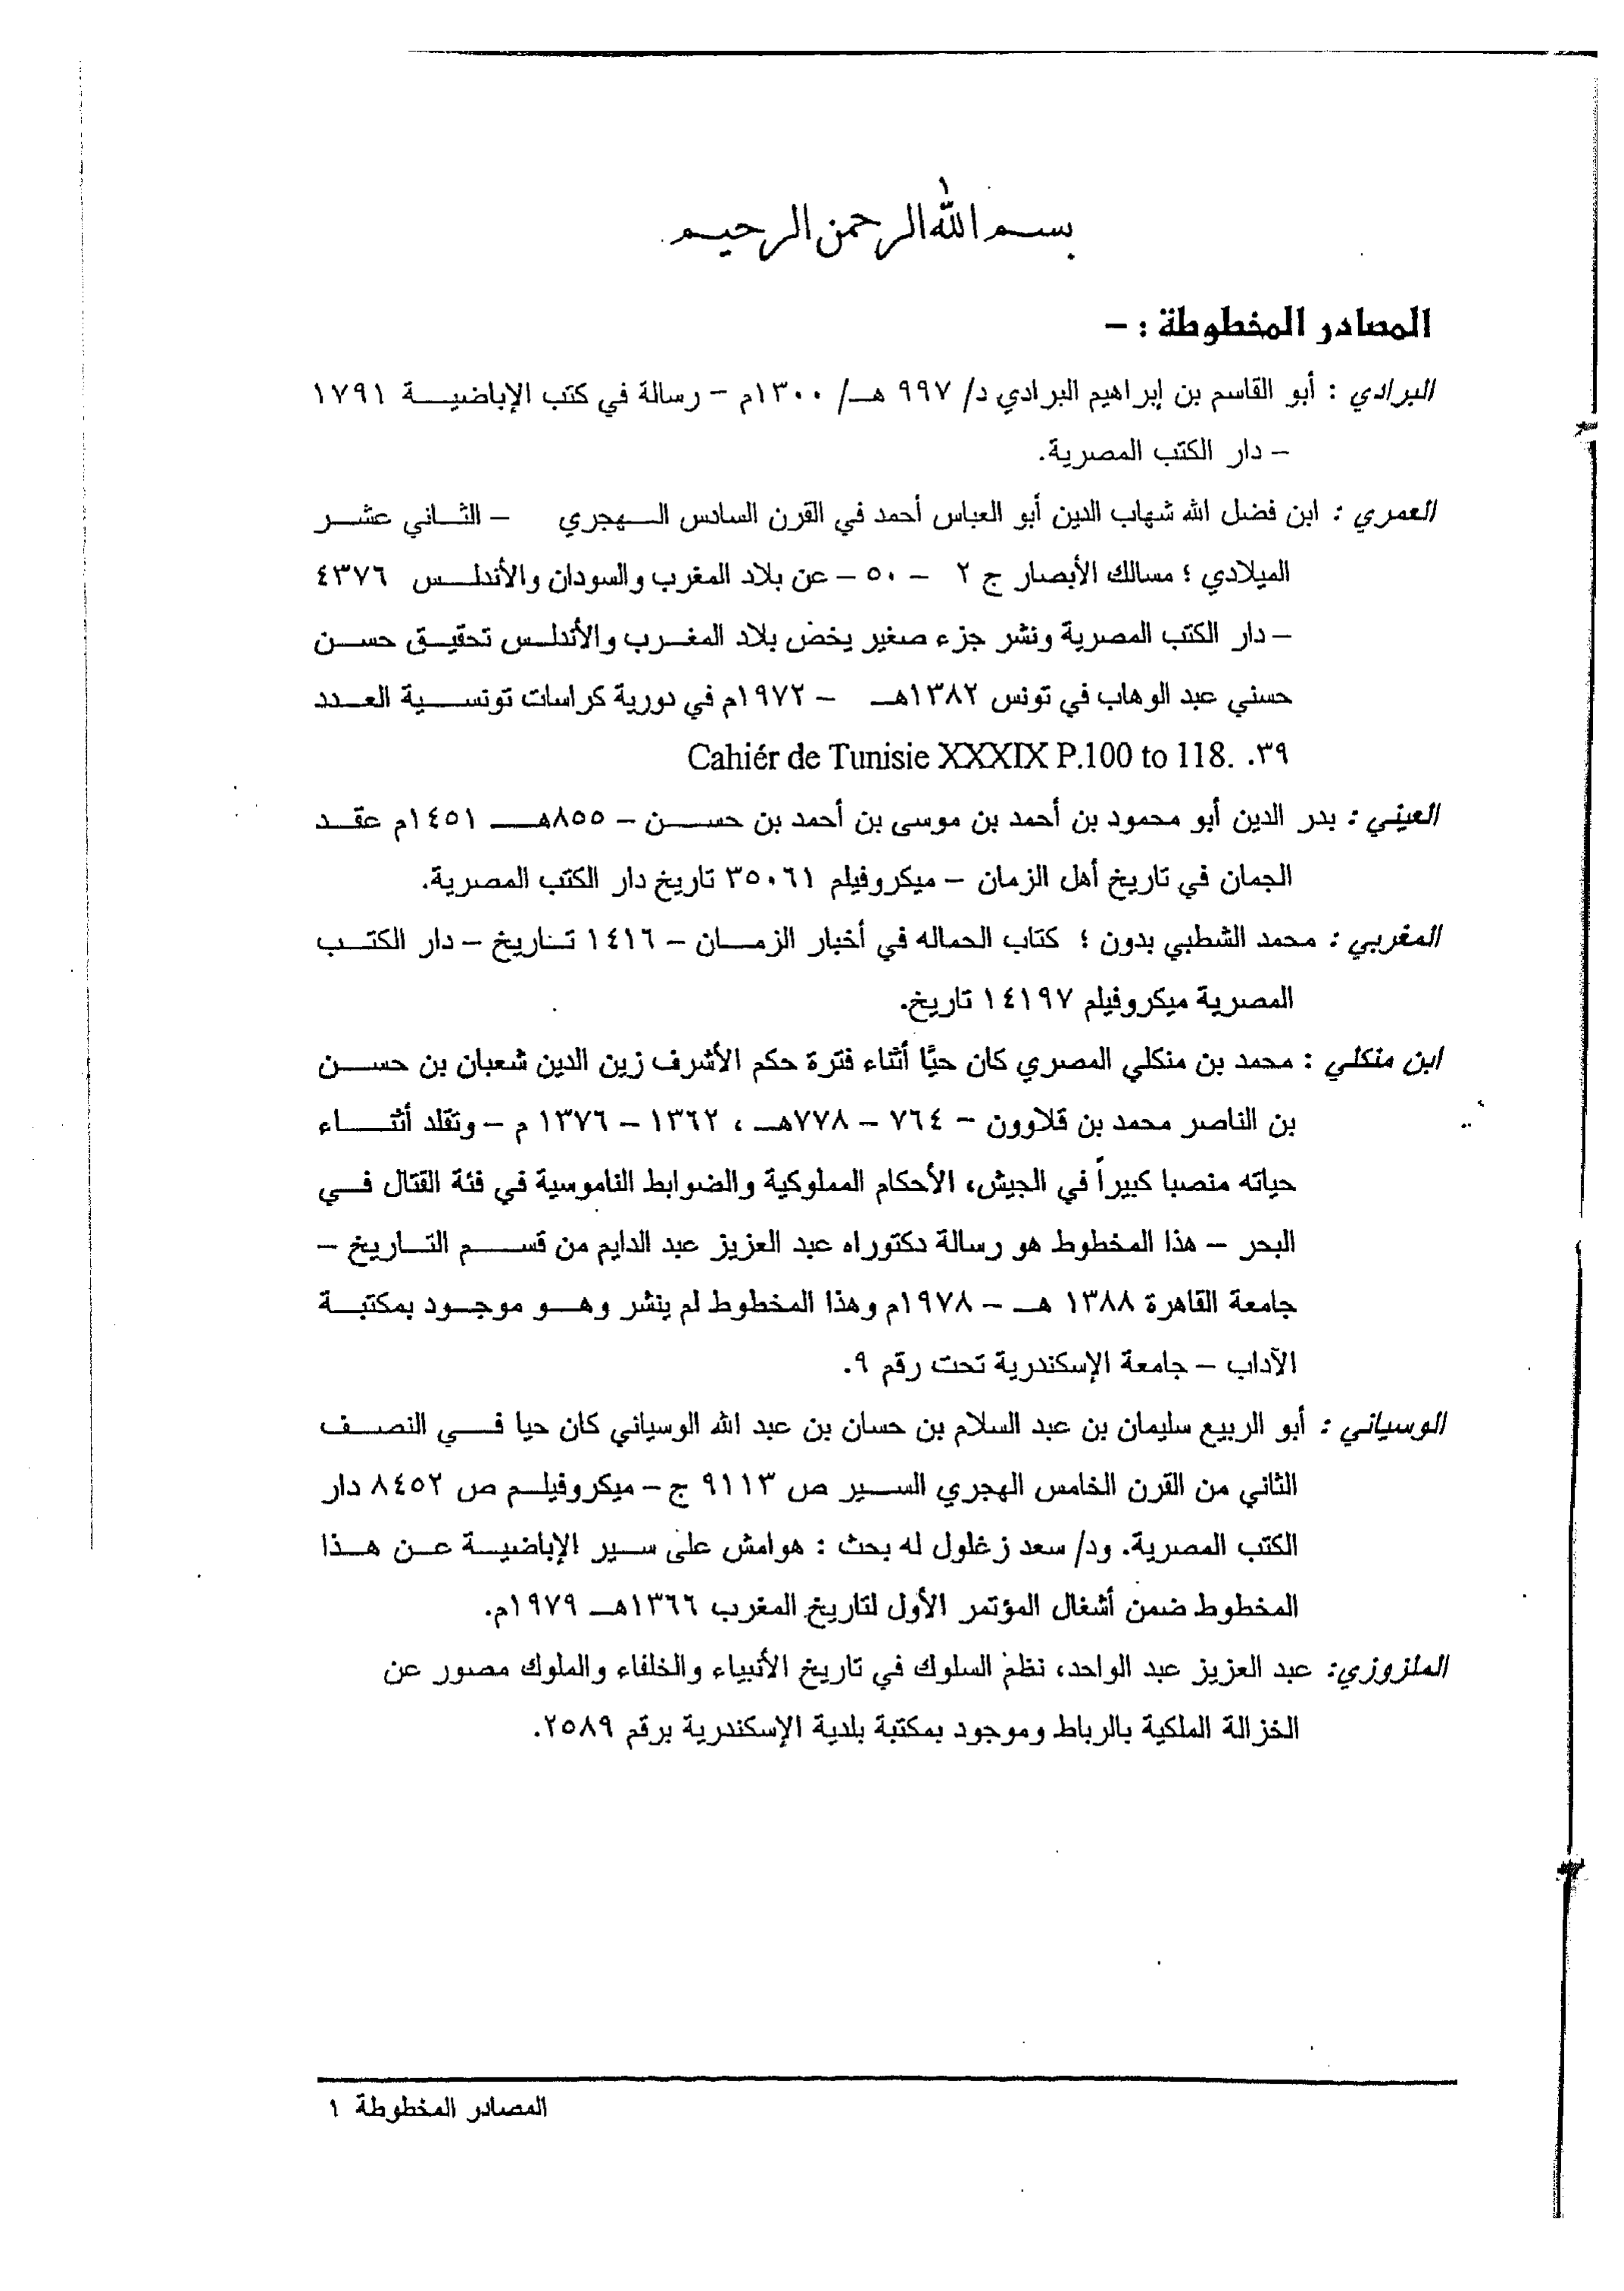 بسم الله الرحمن الرحيم
المصادر المخطوطة : –
البرادي : أبو القاسم بن إبراهيم البرادي د/ ٩٩٧ هـ/ ١٣٠٠م – رسالة في كتب الإباضية ١٧٩١
– دار الكتب المصرية.
العمري : ابن فضل الله شهاب الدين أبو العباس أحمد في القرن السادس الهجري – الثاني عشر
الميلادي ؛ مسالك الأبصار ج ٢ – ٥٠ – عن بلاد المغرب والسودان والأندلس ٤٣٧٦
– دار الكتب المصرية ونشر جزء صغير يخض بلاد المغرب والأندلس تحقيق حسن
حسني عبد الوهاب في تونس ١٣٨٢هـ – ١٩٧٢م في دورية كراسات تونسية العدد
٣٩. Cahiér de Tunisie XXXIX P.100 to 118.
العيني : بدر الدين أبو محمود بن أحمد بن موسى بن أحمد بن حسن – ٨٥٥هـ ١٤٥١م عقد
الجمان في تاريخ أهل الزمان – ميكروفيلم ٣٥٠٦١ تاريخ دار الكتب المصرية.
المغربي : محمد الشطبي بدون ؛ كتاب الحماله في أخبار الزمان – ١٤١٦ تاريخ – دار الكتب
المصرية ميكروفيلم ١٤١٩٧ تاريخ.
ابن منكلي : محمد بن منكلي المصري كان حيًا أثناء فترة حكم الأشرف زين الدين شعبان بن حسن
بن الناصر محمد بن قلاوون – ٧٦٤ – ٧٧٨هـ ، ١٣٦٢ – ١٣٧٦ م – وتقلد أثناء
حياته منصبا كبيراً في الجيش، الأحكام المملوكية والضوابط الناموسية في فئة القتال في
البحر – هذا المخطوط هو رسالة دكتوراه عبد العزيز عبد الدايم من قسم التاريخ –
جامعة القاهرة ١٣٨٨ هـ – ١٩٧٨م وهذا المخطوط لم ينشر وهو موجود بمكتبة
الآداب – جامعة الإسكندرية تحت رقم ٩.
الوسياني : أبو الربيع سليمان بن عبد السلام بن حسان بن عبد الله الوسياني كان حيا في النصف
الثاني من القرن الخامس الهجري السير ص ٩١١٣ ج – ميكروفيلم ص ٨٤٥٢ دار
الكتب المصرية. ود/ سعد زغلول له بحث : هوامش على سير الإباضية عن هذا
المخطوط ضمن أشغال المؤتمر الأول لتاريخ المغرب ١٣٦٦هـ ١٩٧٩م.
الملزوزي: عبد العزيز عبد الواحد، نظم السلوك في تاريخ الأنبياء والخلفاء والملوك مصور عن
الخزالة الملكية بالرباط وموجود بمكتبة بلدية الإسكندرية برقم ٢٥٨٩.
المصادر المخطوطة ١